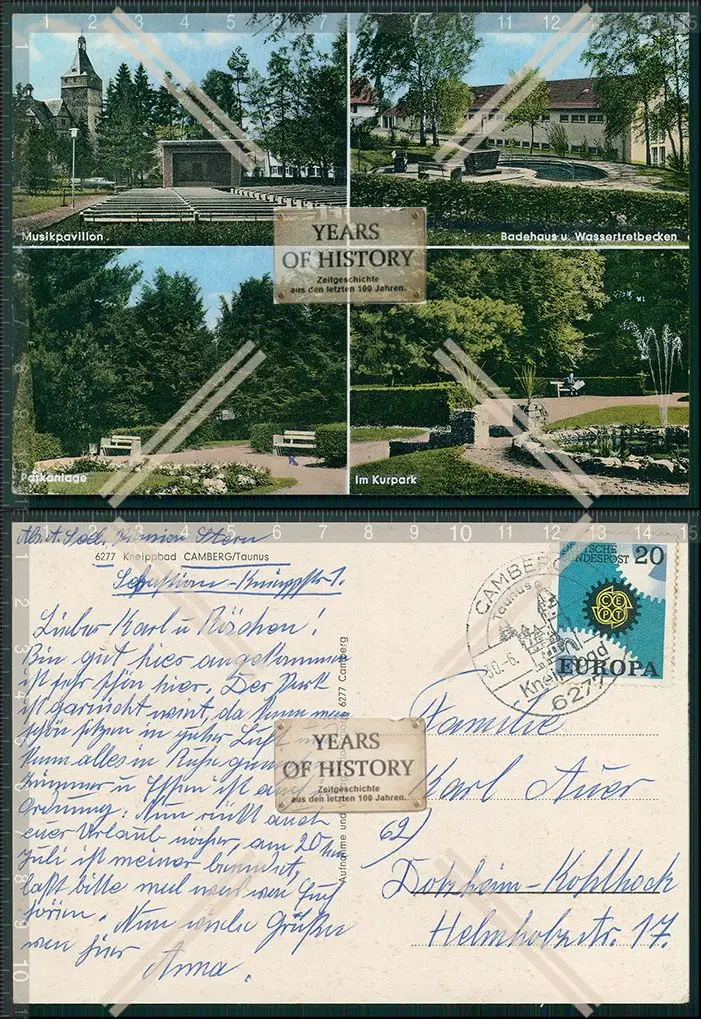 Musikpavillon
Badehaus u. Wassertretbecken
YEARS
OF HISTORY
Zeitgeschichte
aus den letzten 100 Jahren.
Parkanlage
Im Kurpark
Pension Stern
6277 Kneippbad CAMBERG/Taunus
Lieber Karl u. Röschen!
Bin gut hier angekommen
ist sehr schön hier. Der Park
ist da kann man
schön sitzen in guter Luft
kann alles in Ruhe
Zimmer u. Essen ist auch
Ordnung. Nun rückt auch
euer Urlaub näher, am 20
Juli ist meiner beendet,
laßt bitte mal von euch
hören. Nun viele Grüße
von hier
Anna.
Aufnahme und
6277 Camberg
DEUTSCHE
BUNDESPOST
20
CEPT
EUROPA
CAMBERG
Taunus
30.-6.
Kneippbad
6277
Familie
Karl Auer
62)
Dotzheim-Kohlheck
Helmholzstr. 17.
YEARS
OF HISTORY
Zeitgeschichte
aus den letzten 100 Jahren.